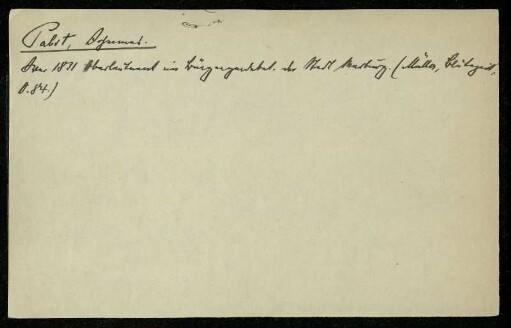 Pabst, Johannes.
War 1831 Oberleutnant im Bürgergardebat. der Stadt Marburg. (Müller, Blütezeit,
S. 84.)